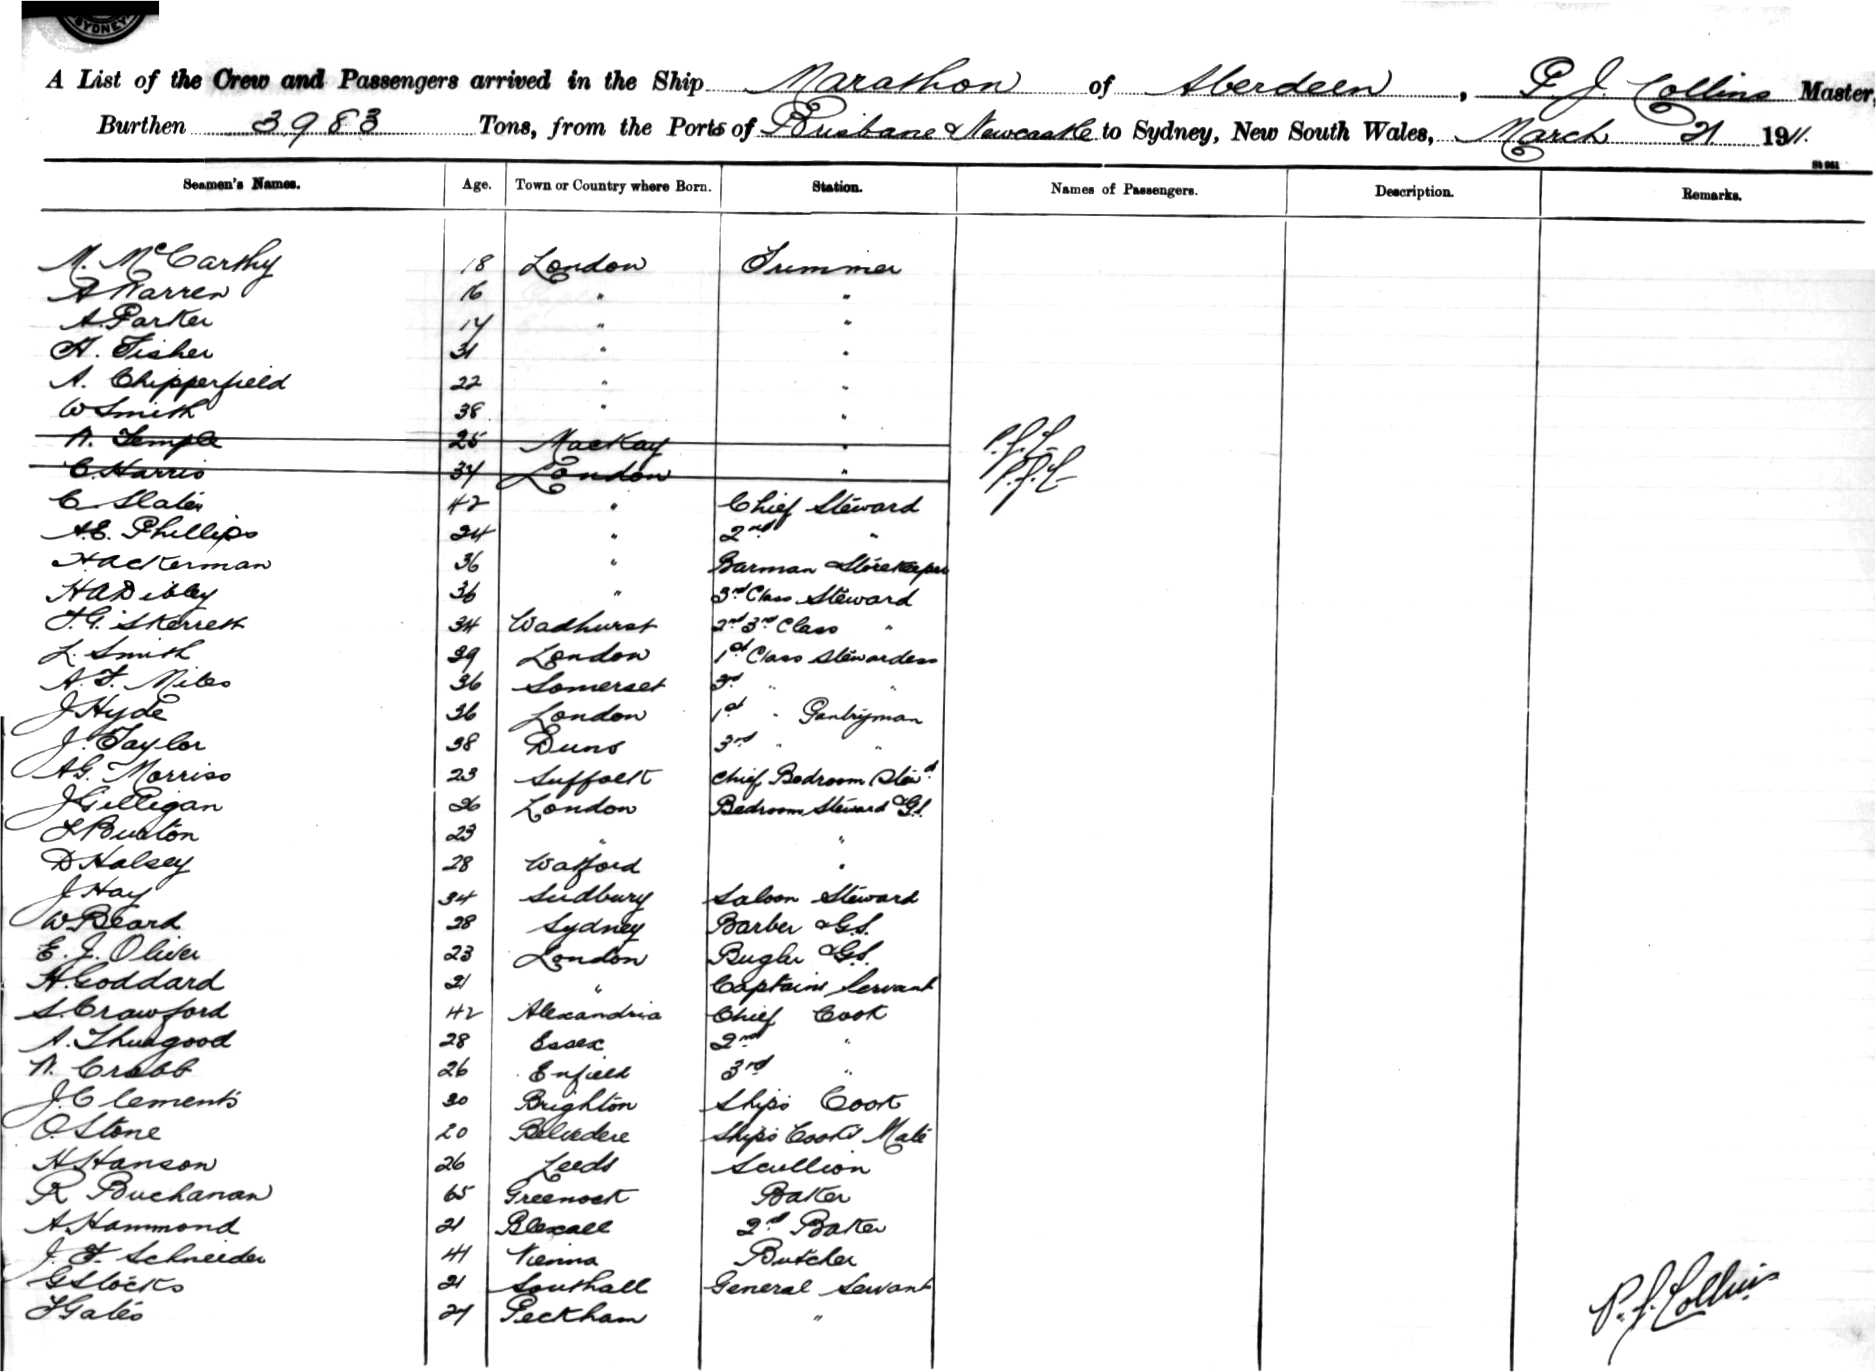 SYDNEY
A List of the Crew and Passengers arrived in the Ship Marathon of Aberdeen, P. J. Collins Master,
Burthen 3983 Tons, from the Ports of Brisbane & Newcastle to Sydney, New South Wales, March 21 1911.
Seamen's Names. Age. Town or Country where Born. Station. Names of Passengers. Description. Remarks.
M. McCarthy 18 London Trimmer
A Warren 16 " "
A. Parker " "
H. Fisher 31 " "
A. Chipperfield 22 " "
W Smith 38 " "
A. Temple 25 MacKay " P.J.C.
C. Harris 34 London " P.J.C.
C. Slater 42 " Chief Steward
A.E. Phillips 24 " 2nd "
H Ackerman 36 " Barman & Storekeeper
H A Dibley 36 " 3rd Class Steward
T.G. Skerrett 34 Wadhurst 2nd 3rd Class "
L. Smith 39 London 1st Class Stewardess
A. F. Niles 36 Somerset 3rd " "
J Hyde 36 London 1st " Pantryman
J. Taylor 38 Duns 3rd " "
A G. Morriss 23 Suffolk Chief Bedroom Stewd
J Gilligan 26 London Bedroom Steward & G.S.
F Buxton 23 " "
D Halsey 28 Watford "
J Hay 34 Sudbury Saloon Steward
W Beard 28 Sydney Barber & G.S.
E. J. Oliver 23 London Bugler & G.S.
H. Goddard 21 " Captains Servant
S. Crawford 42 Alexandria Chief Cook
A. Thurgood 28 Essex 2nd "
A. Crabb 26 Enfield 3rd "
J. Clements 30 Brighton Ships Cook
O. Stone 20 Belvedere Ships Cooks Mate
H Hanson 26 Leeds Scullion
R Buchanan 65 Greenock Baker
A. Hammond 21 Blaxall 2nd Baker
J. F. Schneider 41 Vienna Butcher
G Stocks 21 Southall General Servant
F Gates 21 Peckham "
P. J. Collins